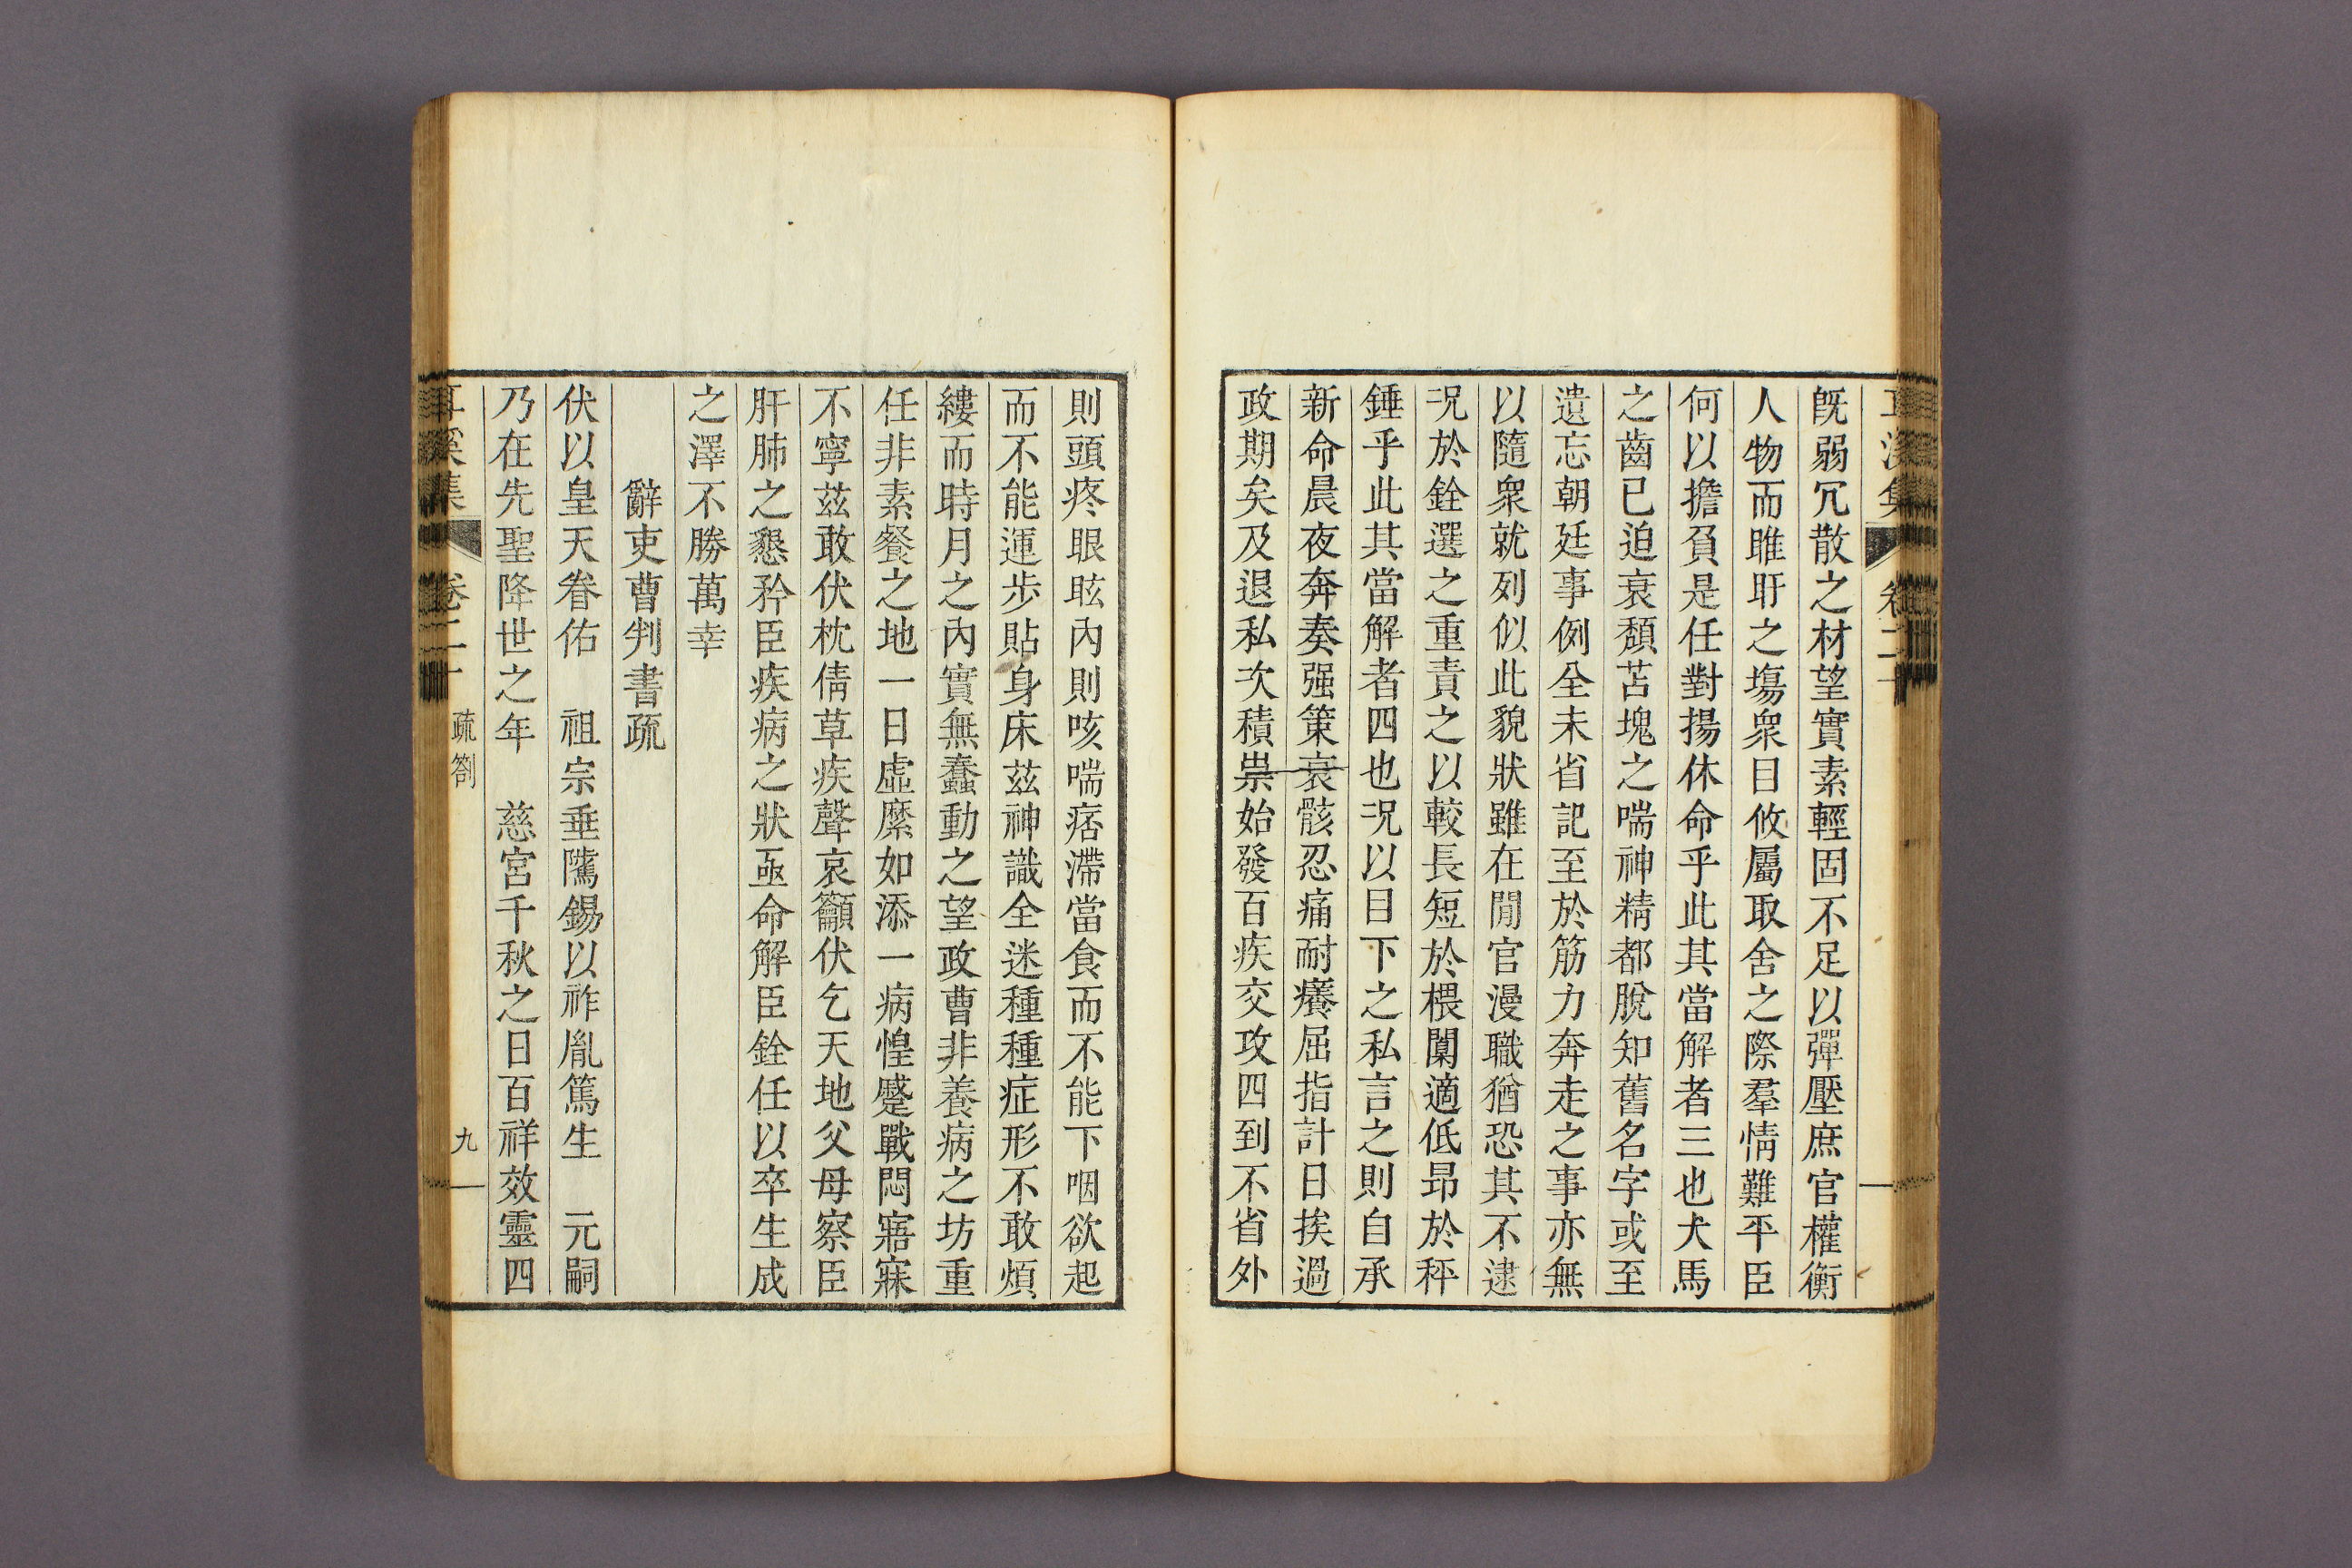 旣弱冗散之材望實素輕固不足以彈壓庶官權衡
人物而睢盱之塲衆目攸屬取舍之際羣情難平臣
何以擔負是任對揚休命乎此其當解者三也犬馬
之齒已迫衰頹苫塊之喘神精都脫知舊名字或至
遺忘朝廷事例全未省記至於筋力奔走之事亦無
以隨衆就列似此貌狀雖在閒官漫職猶恐其不逮
况於銓選之重責之以較長短於椳闑適低昂於秤
錘乎此其當解者四也况以目下之私言之則自承
新命晨夜奔奏强策衰骸忍痛耐癢屈指計日挨過
政期矣及退私次積祟始發百疾交攻四到不省外
則頭疼眼眩內則咳喘痞滯當食而不能下咽欲起
而不能運步貼身床玆神識全迷種種症形不敢煩
縷而時月之內實無蠢動之望政曹非養病之坊重
任非素餐之地一日虛縻如添一病惶蹙戰悶寤寐
不寧玆敢伏枕倩草疾聲哀籲伏乞天地父母察臣
肝肺之懇矜臣疾病之狀亟命解臣銓任以卒生成
之澤不勝萬幸
辭吏曹判書疏
伏以皇天眷佑　祖宗垂隲錫以祚胤篤生　元嗣
乃在先聖降世之年　慈宮千秋之日百祥效靈四
耳溪集　卷二十　疏劄　九